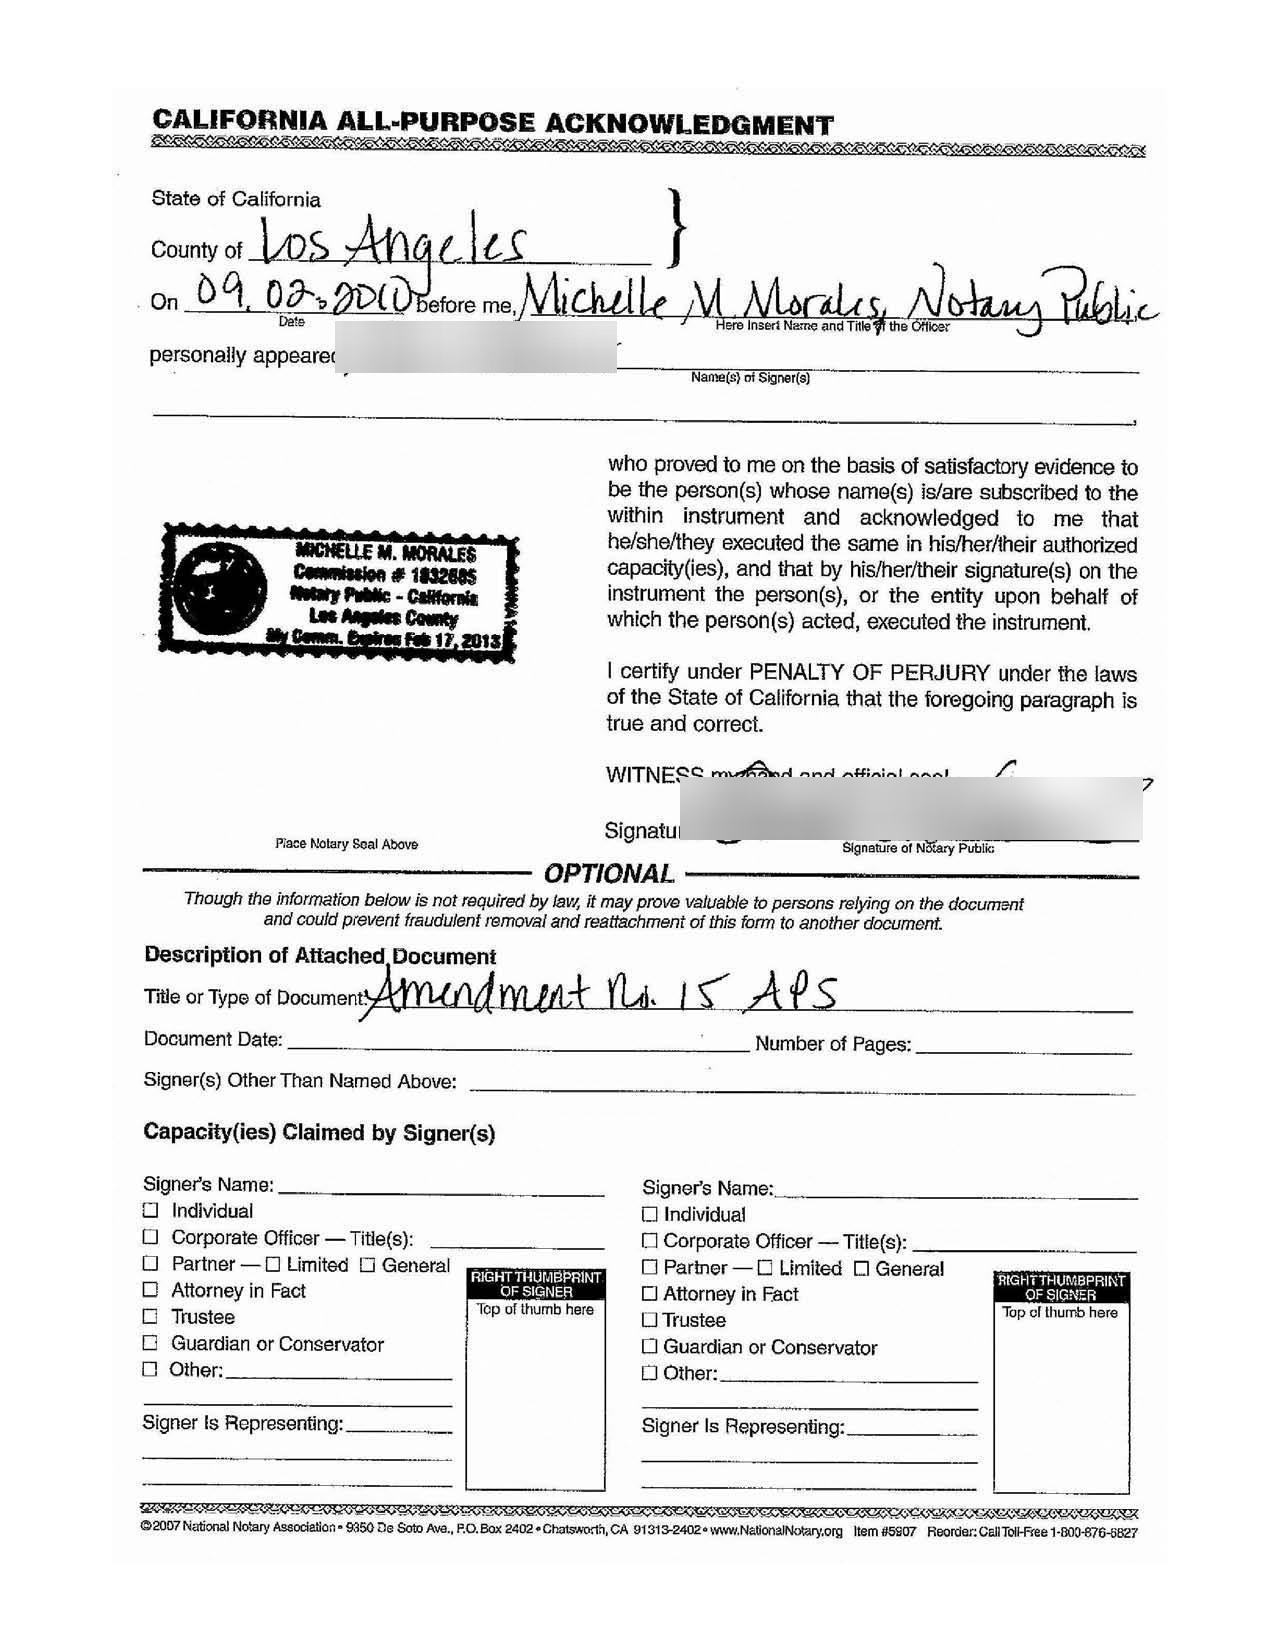 CALIFORNIA ALL-PURPOSE ACKNOWLEDGMENT
State of California
County of Los Angeles
On 09.02.2010 before me, Michelle M Morales, Notary Public
Date
Here Insert Name and Title of the Officer
personally appeared
Name(s) of Signer(s)
who proved to me on the basis of satisfactory evidence to
be the person(s) whose name(s) is/are subscribed to the
within instrument and acknowledged to me that
he/she/they executed the same in his/her/their authorized
capacity(ies), and that by his/her/their signature(s) on the
instrument the person(s), or the entity upon behalf of
which the person(s) acted, executed the instrument.
MICHELLE M. MORALES
Commission #
Notary Public - California
Los Angeles County
My Comm. Expires Feb 17, 2013
I certify under PENALTY OF PERJURY under the laws
of the State of California that the foregoing paragraph is
true and correct.
WITNESS my hand and official seal
Signatu
Place Notary Seal Above
Signature of Notary Public
OPTIONAL
Though the information below is not required by law, it may prove valuable to persons relying on the document
and could prevent fraudulent removal and reattachment of this form to another document.
Description of Attached Document
Title or Type of Document: Amendment No. 15 APS
Document Date: Number of Pages:
Signer(s) Other Than Named Above:
Capacity(ies) Claimed by Signer(s)
Signer's Name:
☐ Individual
☐ Corporate Officer — Title(s):
☐ Partner — ☐ Limited ☐ General
☐ Attorney in Fact
☐ Trustee
☐ Guardian or Conservator
☐ Other:
Signer Is Representing:
RIGHT THUMBPRINT
OF SIGNER
Top of thumb here
Signer's Name:
☐ Individual
☐ Corporate Officer — Title(s):
☐ Partner — ☐ Limited ☐ General
☐ Attorney in Fact
☐ Trustee
☐ Guardian or Conservator
☐ Other:
Signer Is Representing:
RIGHT THUMBPRINT
OF SIGNER
Top of thumb here
©2007 National Notary Association • 9350 De Soto Ave., P.O. Box 2402 • Chatsworth, CA 91313-2402 • www.NationalNotary.org Item #5907 Reorder: Call Toll-Free 1-800-876-6827